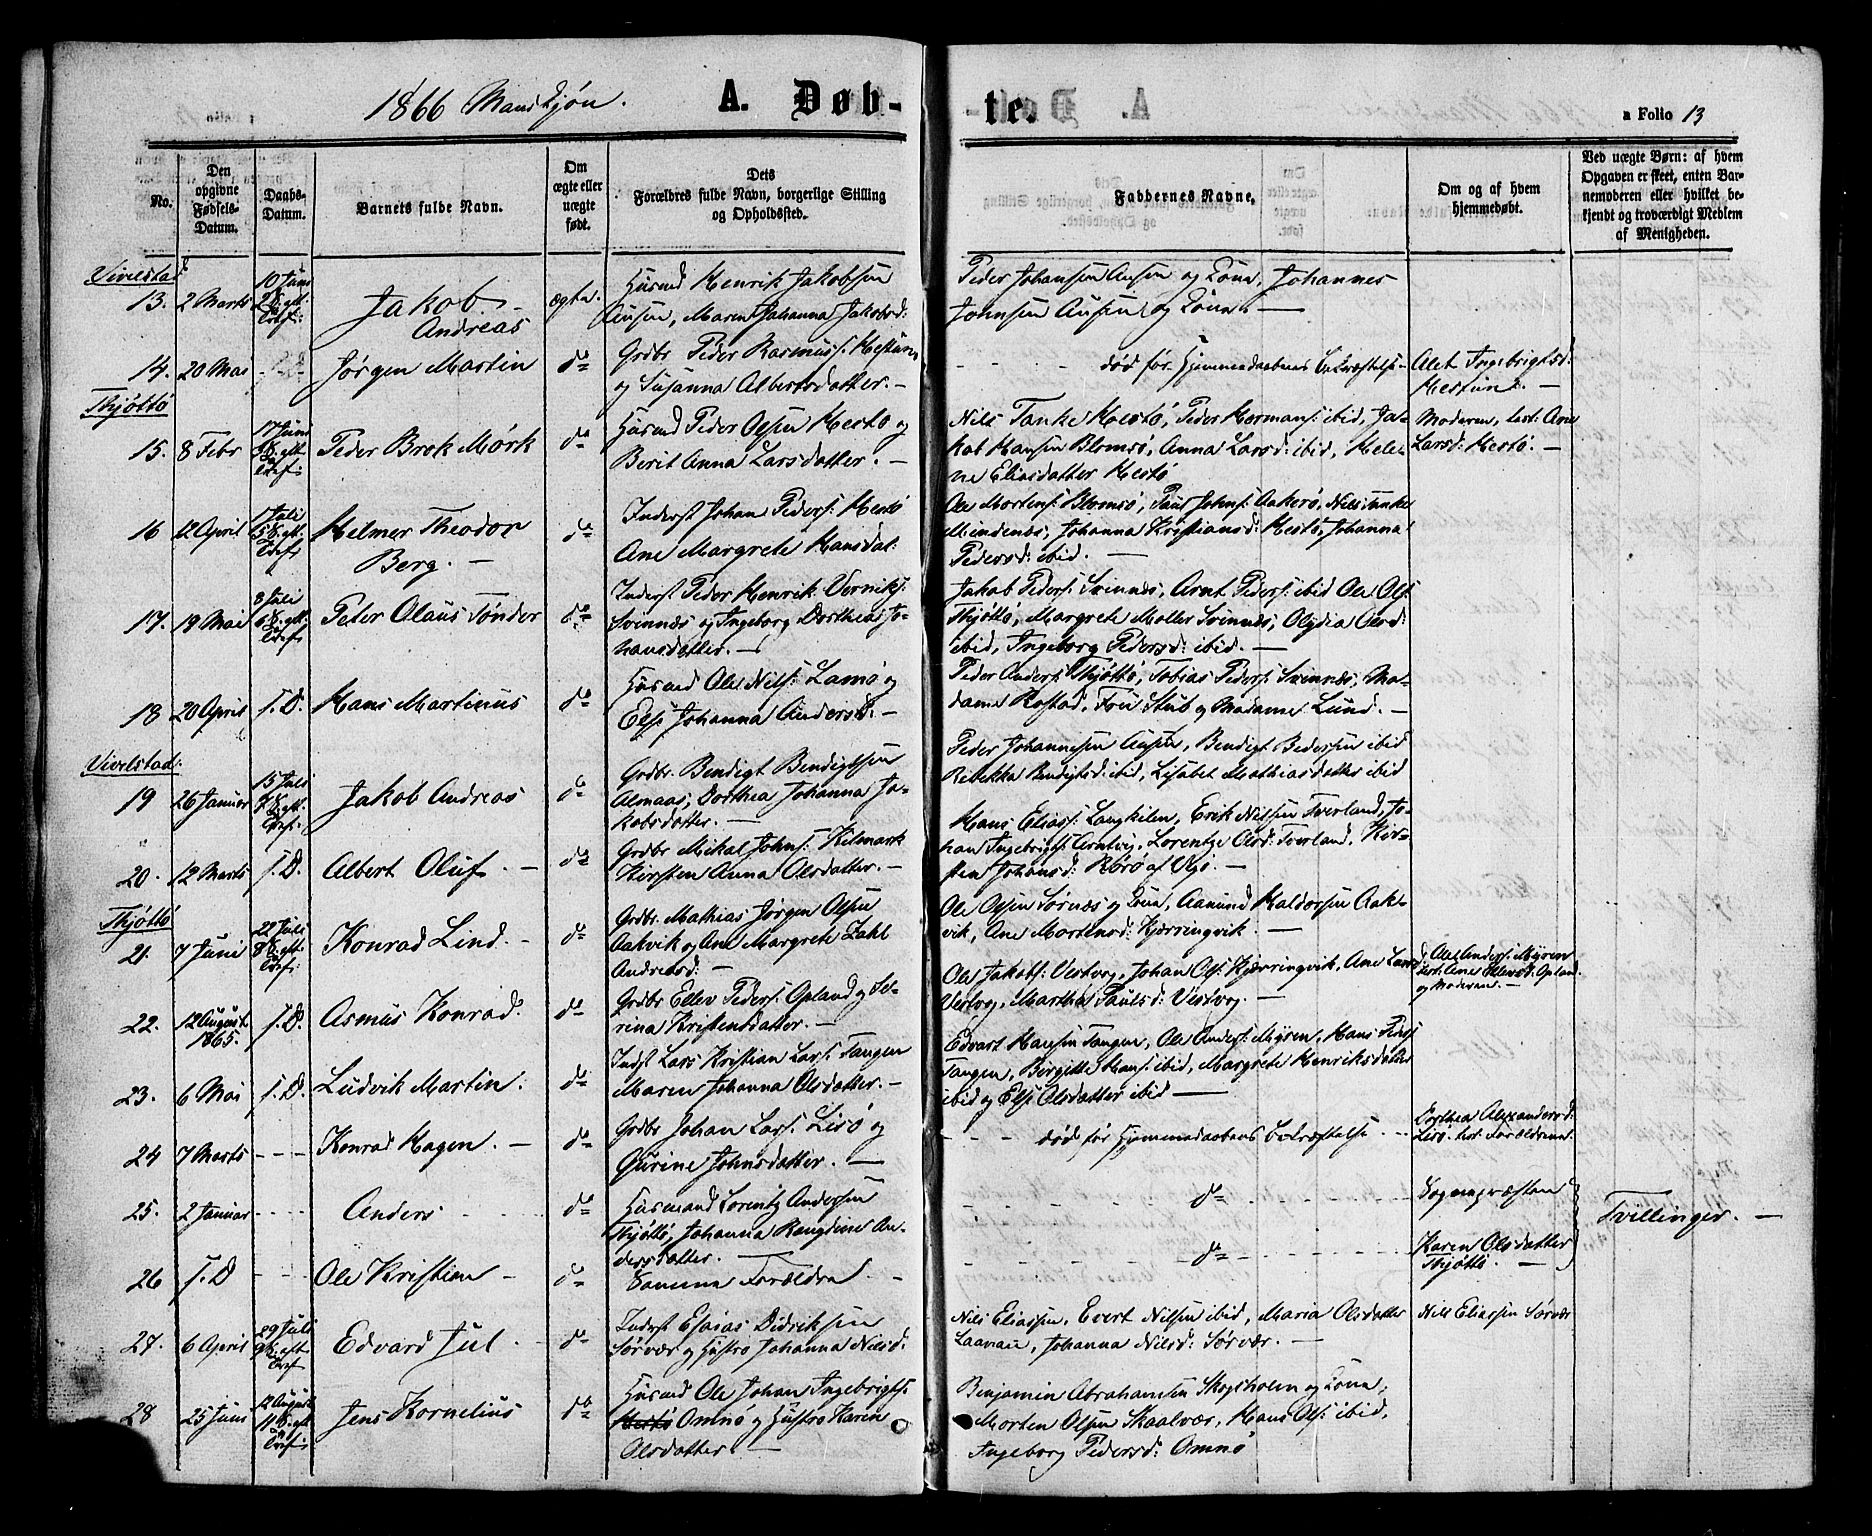 1866 Mandkjøn.
A. Døb-
te.
a Folio 13
No.
Den opgivne Fødsels-Datum.
Daabs-Datum.
Barnets fulde Navn.
Om ægte eller uægte født.
Dets Forældres fulde Navn, borgerlige Stilling og Opholdssted.
Faddernes Navne.
Om og af hvem hjemmedøbt.
Ved uægte Børn: af hvem Opgaven er skeet, enten Barnemoderen eller hvilket bekjendt og troværdigt Medlem af Menigheden.
Vivelstad
13. 2 Marts 10 Juni 2 S. eft. Tref: Jakob Andreas ægte.
Husmd Henrik Jakobsen
Ausen, Maren Johanna Jakobsd:
Peder Johansen Ausen og Kone, Johannes
Johnsen Ausen og Kone. —
14. 20 Mai - Jørgen Martin do
Grdbr Peder Rasmuss: Hestun
og Susanna Albertsdatter. —
- - - død før Hjemmedaabens Bekræftelse -
Alet Ingebrigtsd:
Hestun. —
Thjøttø
15. 8 Febr 17 Juni Peder Brok Mørk do
Husmd Peder Olsen Hestø og
Berit Anna Larsdatter. —
Nils Tanke Hestø, Peder Hermans: ibid, Ja-
kob Hansen Blomsø, Anna Larsd: ibid, Hele-
ne Eliasdatter Hestø
Moderen, test: Ane
Larsd: Hestø. —
16 12 April 1 Juli 5 S. eft. Tref: Helmer Theodor
Berg. — do
Inderst Johan Peders: Hestø
Ane Margrete Hansdat:
Ole Mortens: Blomsø, Paul Johns: Aakerø, Nils Tanke
Mindenes, Johanna Kristiansd: Hestø, Johanna
Pedersd: ibid. —
17. 19 Mai 8 Juli 6 S. eft. Tref: Peter Olaus Tønder do
Inderst Peder Henrik Verniks:
Svinnæs og Ingeborg Dorthea Jo-
hansdatter. —
Jakob Peders: Svinnæs, Arnt Peders: ibid Ole Ols:
Thjøttø, Margrete Moller Svinnæs, Olydia Olsd:
ibid, Ingeborg Pedersd: ibid. —
18 20 April S. D. Hans Martinus do
Husmd Ole Nils: Lamø og
Else Johanna Andersd: —
Peder Anders: Thjøttø, Tobias Peders: Svinnæs, Ma-
dame Rostad, Fru Stub og Madame Lund. —
Vivelstad:
19 26 Januar 15 Juli 7 S. eft. Tref: Jakob Andreas do
Grdbr. Bendigt Bendigtsen
Almaas, Dorthea Johanna Ja-
kobsdatter. —
Peder Johannesen Ausen, Bendigt Bedersen ibid
Rebekka Bendigtsd: ibid, Lisabet Mathiasdatter ibid
20. 12 Marts S. D. Albert Oluf. — do
Grdbr Mikal Johns: Kilmark
Kirsten Anna Olsdatter. —
Hans Eliass: Langkilen, Erik Nilsen Tverland, Jo-
han Ingebrigts: Arntvig, Lorentze Olsd: Tverland, Kir-
sten Johansd: Rørø af Vegø. —
Thjøttø
21. 7 Juni 22 Juli 8 S. eft. Tref: Konrad Lind. — do
Grdbr. Mathias Jørgen Olsen
Aakvik og Ane Margrete Zahl
Andreasd: —
Ole Olsen Sørnæs og Kone, Aamund Haldorsen Aak-
vik, Ane Mortensd: Kjærringvik. —
22. 12 August 1865. S. D. Asmus Konrad. do
Grdbr Ellev Peders: Opland og Se-
rina Kristensdatter. —
Ole Jakobs: Vestvog, Johan Ols: Kjærringvik, Ane Larsd:
Vestvog, Martha Paulsd: Vestvog. —
Ole Anders: Myren
test: Ane Ellevsd: Opland
og Moderen. —
23. 6 Mai S. D. Ludvik Martin. do
Indst Lars Kristian Lars: Tangen
Maren Johanna Olsdatter. —
Edvart Hansen Tangen, Ole Anders: Myren, Hans Peders:
Tangen, Birgitte Hans: ibid, Margrete Henriksdatter
ibid og Else Olsdatter ibid —
24 7 Marts - - - Konrad Hagen. — do
Grdbr Johan Lars: Lisø og
Gurine Johnsdatter. —
- - - død før Hjemmedaabens Bekræftelse - -
Dorthea Alexandersd:
Lisø. test: Forældrene.
25. 2 Januar - - - Anders do
Husmand Lorentz Andersen
Thjøttø, Johanna Rengdine An-
dersdatter. —
do
Sognepræsten
Tvillinger. —
26 S. D - - Ole Kristian — do
Samme Forældre. —
do
Karen Olsdatter
Thjøttø. —
27. 6 April 29 Juli 9 S. eft. Tref Edvard Jul - do
Inderst Esaias Didriksen
Sørvær og Hustro Johanna Nilsd:
Nils Eliassen, Evert Nilsen ibid, Maria Olsdatter
Laanan, Johanna Nilsd: Sørvær. —
Nils Eliassen Sørvær
28 25 Juni 12 August 11 S. eft. Tref: Jens Kornelius do
Husmd Ole Johan Ingebrigts:
Hestø Omnø og Hustro Karen
Olsdatter. —
Benjamin Abrahamsen Skogsholm og Kone,
Morten Olsen Skaalvær, Hans Ols: ibid,
Ingeborg Pedersd: Omnø